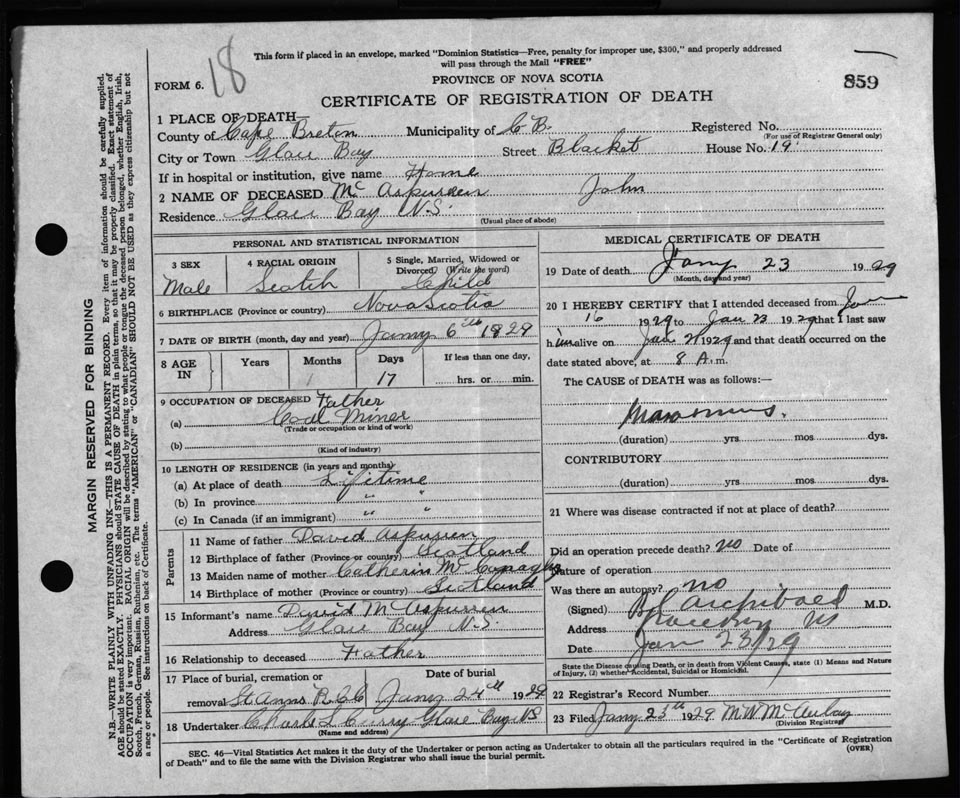 This form if placed in an envelope, marked "Dominion Statistics—Free, penalty for improper use, $300," and properly addressed
will pass through the Mail "FREE"
FORM 6. 18
PROVINCE OF NOVA SCOTIA
859
CERTIFICATE OF REGISTRATION OF DEATH
1 PLACE OF DEATH
County of Cape Breton Municipality of C B. Registered No.
(For use of Registrar General only)
City or Town Glace Bay Street Blacket House No. 19
If in hospital or institution, give name Home
2 NAME OF DECEASED Mc Aspurren John
Residence Glace Bay N.S.
(Usual place of abode)
PERSONAL AND STATISTICAL INFORMATION
3 SEX 4 RACIAL ORIGIN 5 Single, Married, Widowed or
Divorced (Write the word)
Male Scotch Child
6 BIRTHPLACE (Province or country) Nova Scotia
7 DATE OF BIRTH (month, day and year) Jany 6th 1929
8 AGE IN Years Months Days If less than one day,
17 hrs. or min.
9 OCCUPATION OF DECEASED Father
(a) Coal Miner
(Trade or occupation or kind of work)
(b)
(Kind of industry)
10 LENGTH OF RESIDENCE (in years and months)
(a) At place of death Lifetime
(b) In province " "
(c) In Canada (if an immigrant) " "
Parents
11 Name of father David Aspurren
12 Birthplace of father (Province or country) Scotland
13 Maiden name of mother Catherin
14 Birthplace of mother (Province or country) Scotland
15 Informant's name David Mc Aspurren
Address Glace Bay N.S.
16 Relationship to deceased Father
17 Place of burial, cremation or Date of burial
removal St Anns Jany 24th 1929
18 Undertaker Charles Curry Glace Bay NS
(Name and address)
MEDICAL CERTIFICATE OF DEATH
19 Date of death Jany 23 1929
(Month, day and year)
20 I HEREBY CERTIFY that I attended deceased from Jan
16 1929 to Jan 23 1929 that I last saw
him alive on Jan 21 1929 and that death occurred on the
date stated above, at 8 A.m.
The CAUSE of DEATH was as follows:—
Marasmus.
(duration) yrs mos dys.
CONTRIBUTORY
(duration) yrs mos dys.
21 Where was disease contracted if not at place of death?
Did an operation precede death? no Date of
Nature of operation
Was there an autopsy? no
(Signed) Archibald M.D.
Address Glace Bay NS
Date Jan 23/29
State the Disease causing Death, or in death from Violent Causes, state (1) Means and Nature
of Injury, (2) whether Accidental, Suicidal or Homicidal.
22 Registrar's Record Number
23 Filed Jany 23th 1929 M W McAulay
(Division Registrar)
SEC. 46—Vital Statistics Act makes it the duty of the Undertaker or person acting as Undertaker to obtain all the particulars required in the "Certificate of Registration
of Death" and to file the same with the Division Registrar who shall issue the burial permit. (OVER)
MARGIN RESERVED FOR BINDING
N.B.—WRITE PLAINLY WITH UNFADING INK—THIS IS A PERMANENT RECORD. Every item of information should be carefully supplied.
AGE should be stated EXACTLY. PHYSICIANS should STATE CAUSE OF DEATH in plain terms, so that it may be properly classified. Exact statement of
OCCUPATION is very important. RACIAL ORIGIN will be described by stating to what people or tongue the deceased person belonged, whether English, Irish,
Scotch, French, German, Russian, Ruthenian, etc. The terms "AMERICAN" or "CANADIAN" SHOULD NOT BE USED as they express citizenship but not
a race or people. See instructions on back of Certificate.